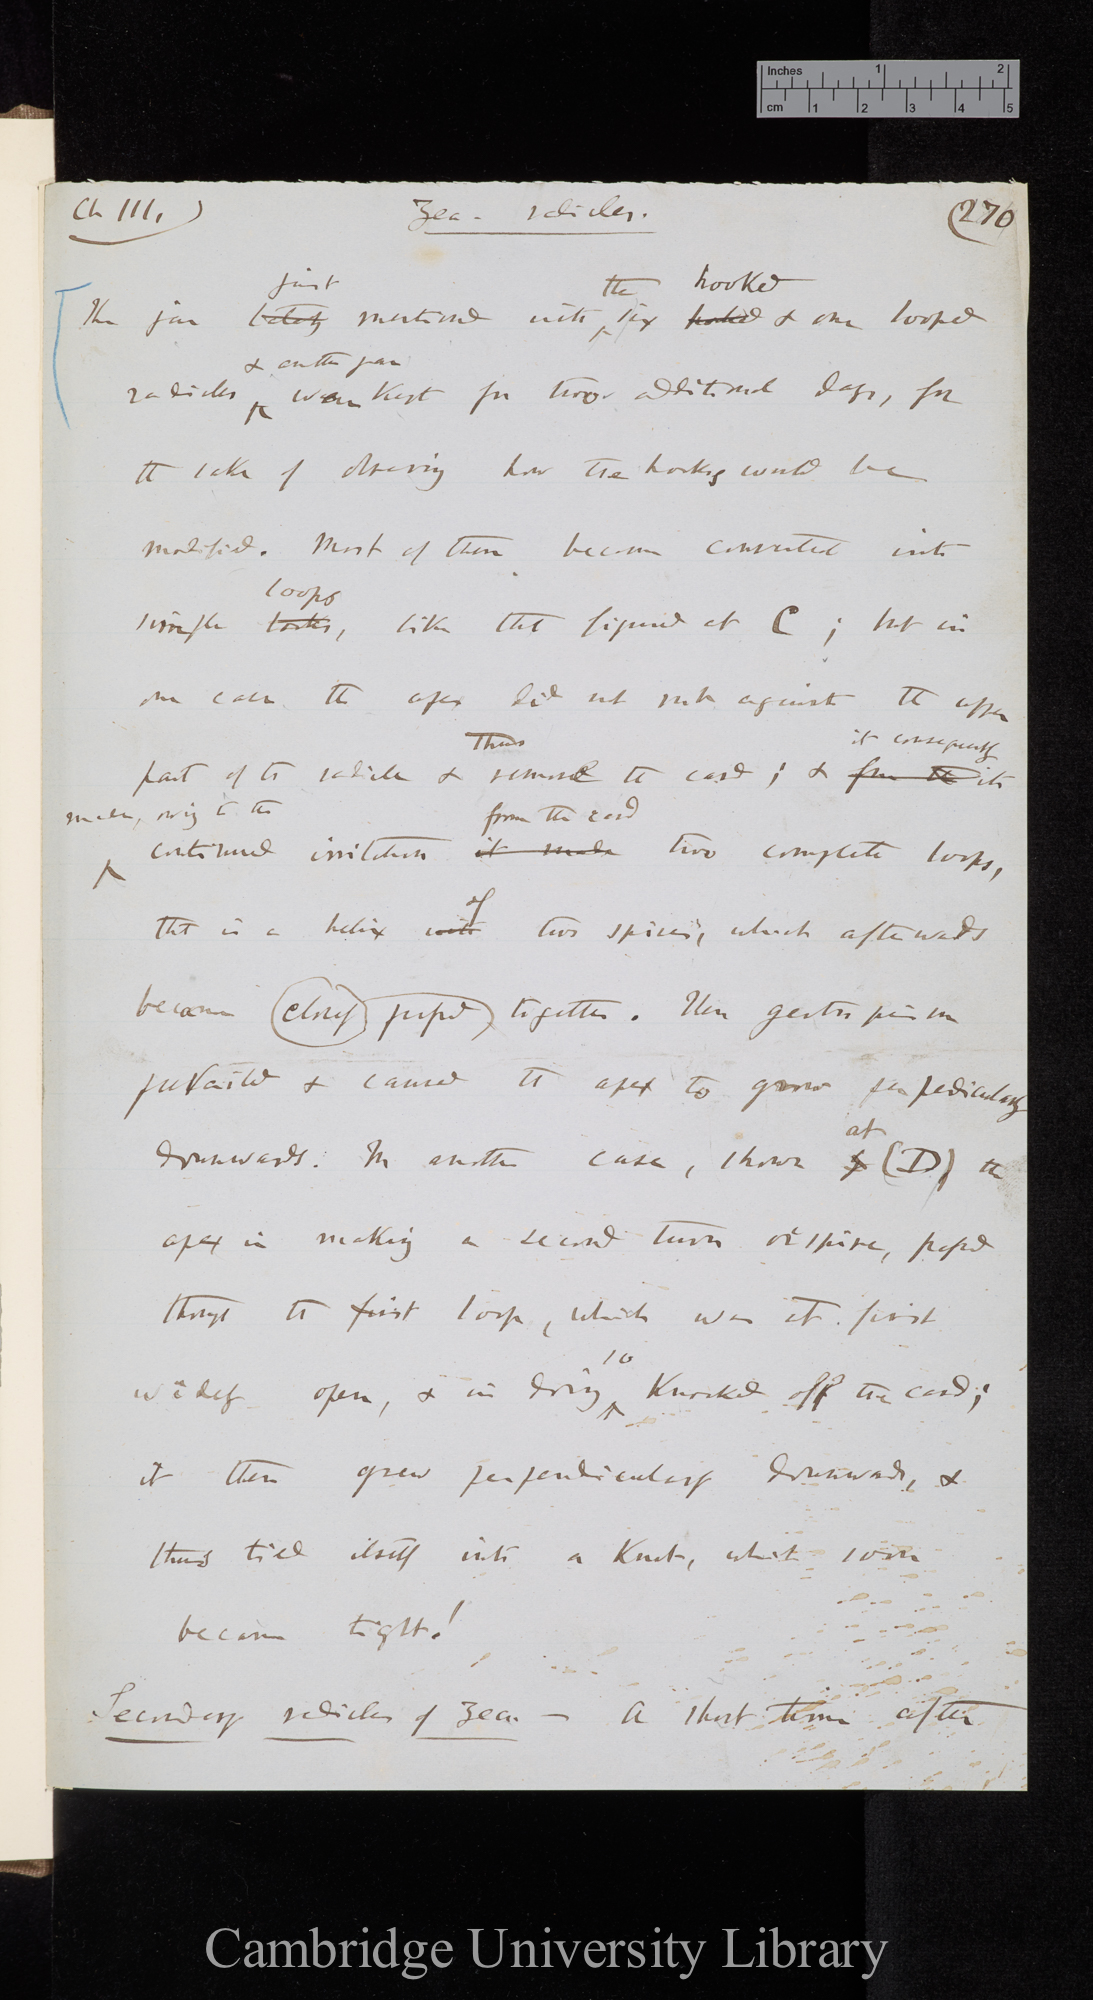 Inches 1 2
cm 1 2 3 4 5
Ch III.)
Zea - radicles.
(270
first the hooked
The jar lately mentioned with six hooked & one looped
& another jar
radicles were kept for two additional days, for
the sake of observing how the hooks would be
modified. Most of them became converted into
loops
simple hooks, like that figured at C; but in
one case the apex did not rub against the upper
Thus it consequently
part of the radicle & remove the card; & from the its
made, owing to the from the card
continued irritation it made two complete loops,
of
that is a helix with two spires, which afterwards
became closely pressed together. Then geotropism
prevailed & caused the apex to grow perpendicularly
at
downwards. In another case, shown (D) the
apex in making a second turn or spire, passed
through the first loop, which was at first
so
widely open, & in doing knocked off the card;
it then grew perpendicularly downwards, &
thus tied itself into a knot, which soon
became tight!
Secondary radicles of Zea. — A short time after
Cambridge University Library